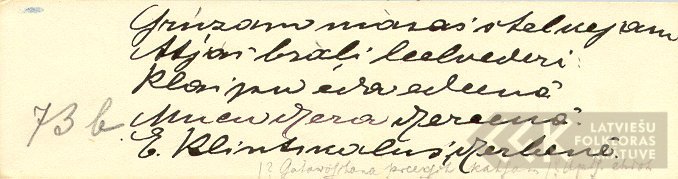 Grūzam māsas istelnejam
Atjās brāli leelvederi
Klaipu ēda edeenā
73 b. Mucu dzera dzereenā.
E. Klintskalns, Dzerbenē.
LATVIEŠU
FOLKLORAS
KRĀTUVE